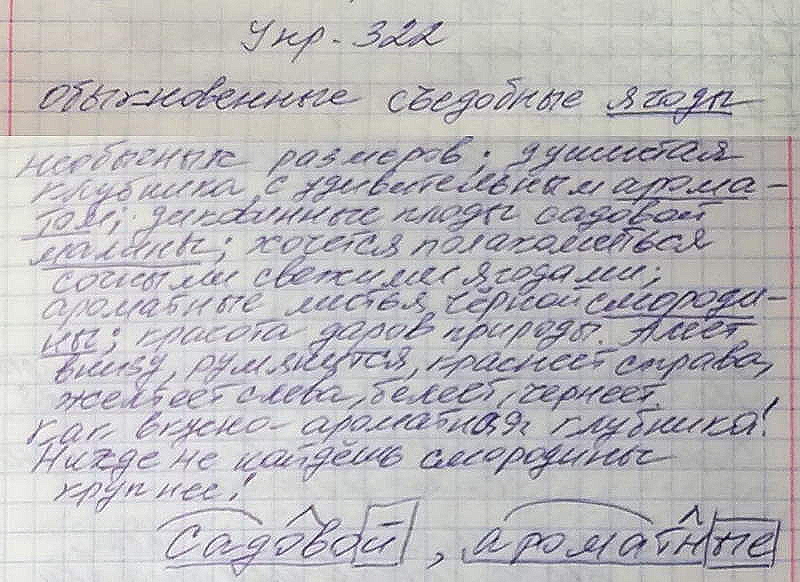 Упр. 322
обыкновенные съедобные ягоды
необычных размеров; душистая
клубника с удивительным арома-
том; диковинные плоды садовой
малины; хочется полакомиться
сочными свежими ягодами;
ароматные листья чёрной смороди-
ны; красота даров природы. Алеет
внизу, румянится, краснеет справа,
желтеет слева, белеет, чернеет.
Как вкусно-ароматная клубника!
Нигде не найдёшь смородины
крупнее!
садовой, ароматные